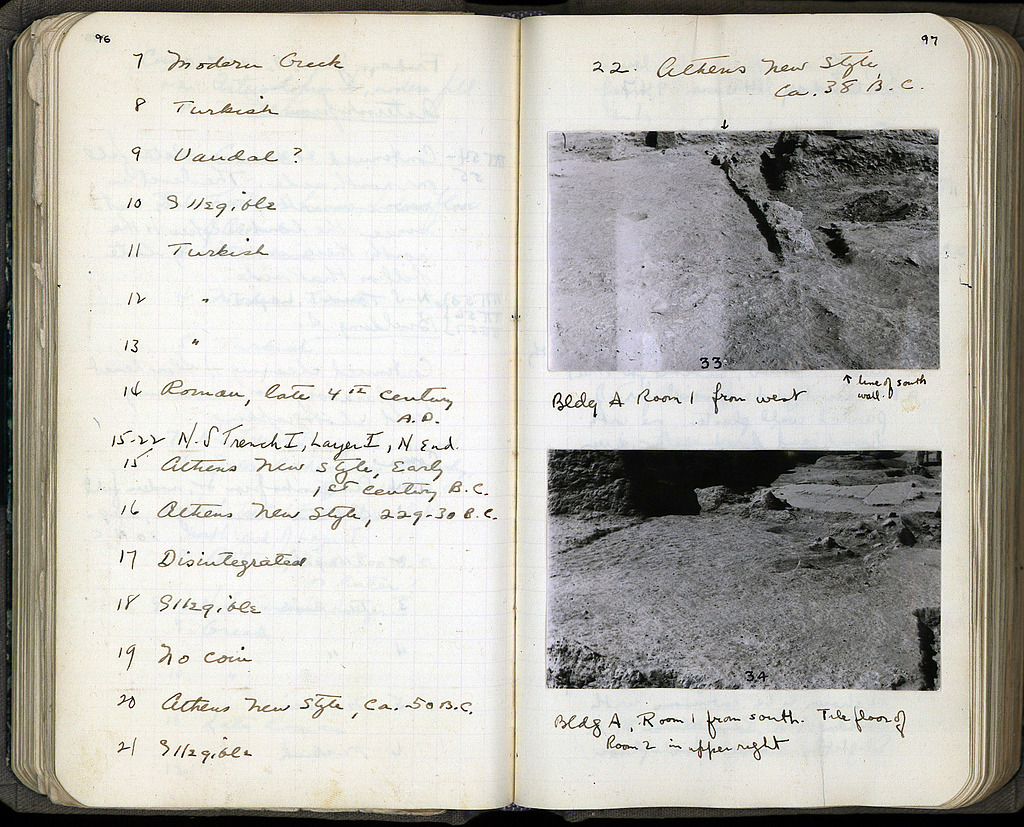 96
7 Modern Greek
8 Turkish
9 Vandal?
10 Illegible
11 Turkish
12 "
13 "
14 Roman, late 4th century
A.D.
15-22 N-S Trench I, Layer I, N End.
15 Athens New Style, Early
1st century B.C.
16 Athens New Style, 229-30 B.C.
17 Disintegrated
18 Illegible
19 No coin
20 Athens New Style, Ca. 50 B.C.
21 Illegible
97
22. Athens New Style
Ca. 38 B.C.
↓
33
↑ line of south
wall.
Bldg A Room 1 from west
34
Bldg A, Room 1 from south. Tile floor of
Room 2 in upper right